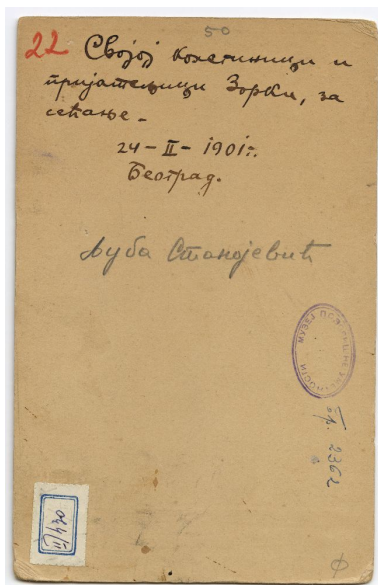 50
22 Својој колегиници и
пријатељици Зорки, за
сећање.
24-II-1901г.
Београд.
Љуба Станојевић
МУЗЕЈ ПОЗОРИШНЕ УМЕТНОСТИ
бр. 2362
044/II